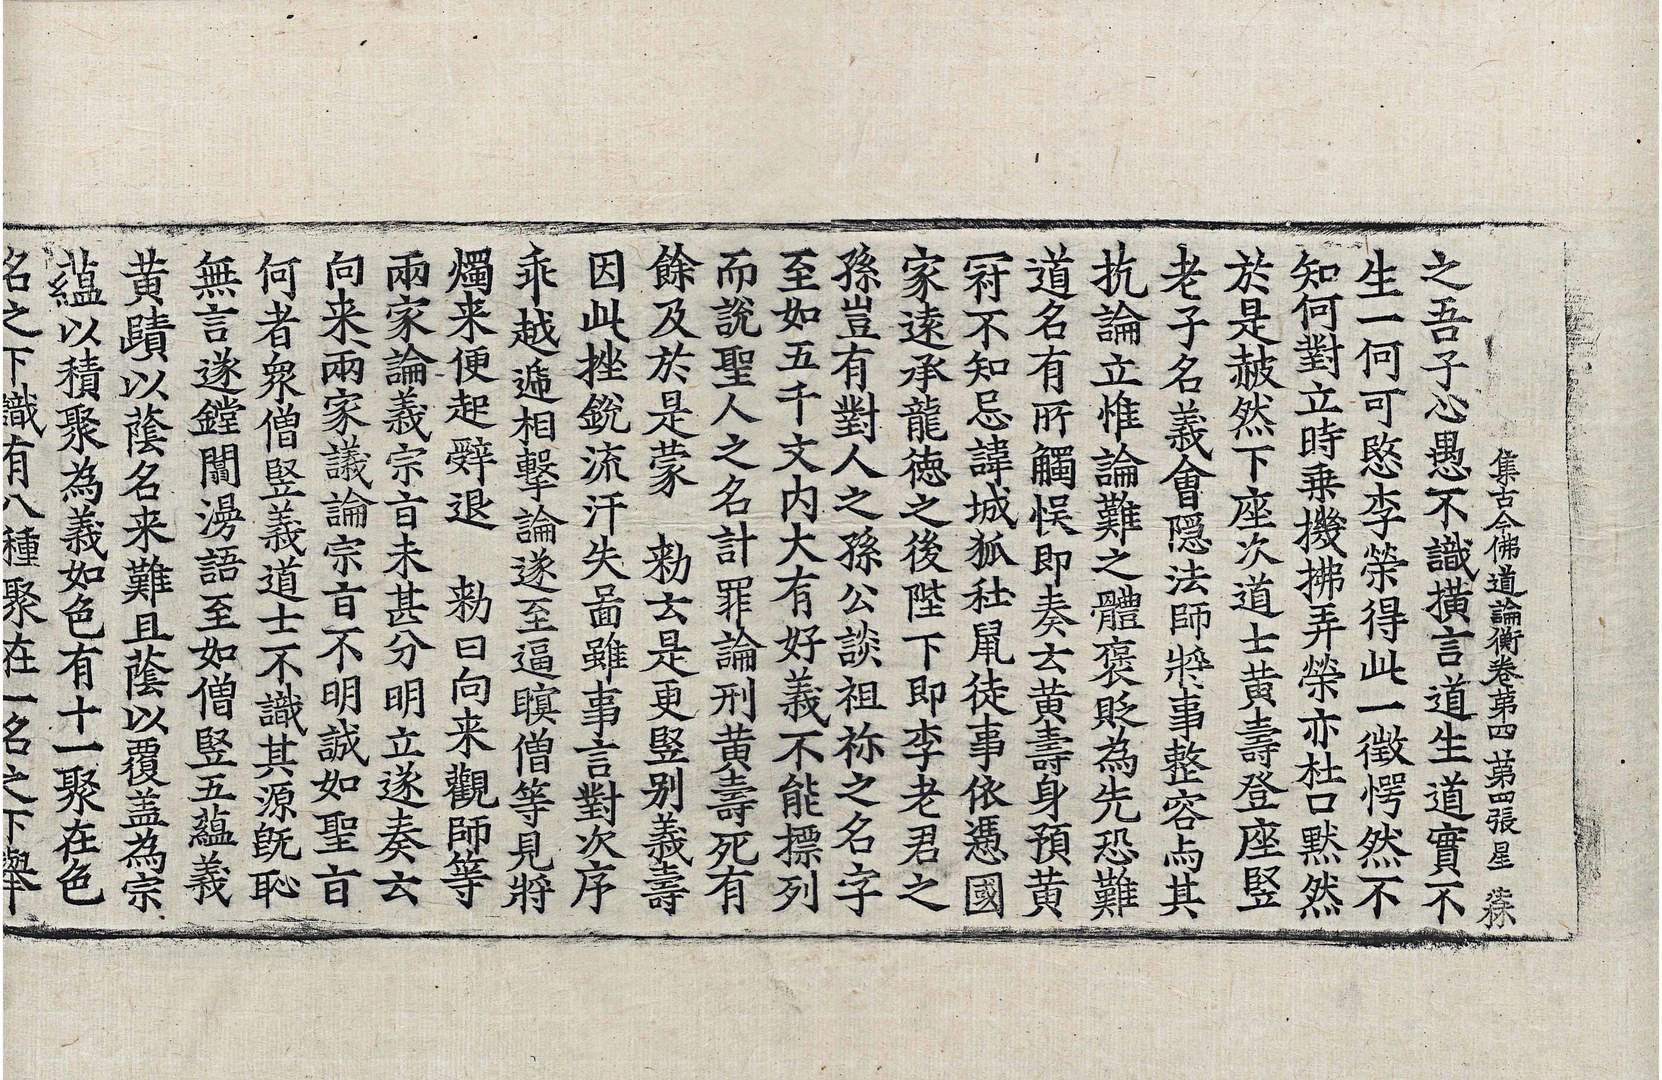 集古今佛道論衡卷第四 第四張 星
之吾子心愚不識撗言道生道實不
生一何可愍李榮得此一徵愕然不
知何對立時乗機拂弄榮亦杜口默然
於是赧然下座次道士黄壽登座竪
老子名義會隱法師將事整容与其
抗論立惟論難之體褒貶為先恐難
道名有所觸悮即奏云黄壽身預黄
冠不知忌諱城狐社鼠徒事依憑國
家遠承龍徳之後陛下即李老君之
孫豈有對人之孫公談祖祢之名字
至如五千文内大有好義不能摽列
而說聖人之名計罪論刑黄壽死有
餘及於是蒙 勑云是更竪别義壽
因此挫銳流汗失啚雖事言對次序
乖越遞相擊論遂至逼瞑僧等見將
燭来便起辤退 勑曰向来觀師等
兩家論義宗㫖未甚分明立遂奏云
向来兩家議論宗㫖不明誠如聖㫖
何者衆僧竪義道士不識其源旣恥
無言遂鏜闒漫語至如僧竪五蘊義
黄賾以蔭名来難且蔭以覆盖為宗
蘊以積聚為義如色有十一聚在色
名之下識有八種聚在一名之下舉